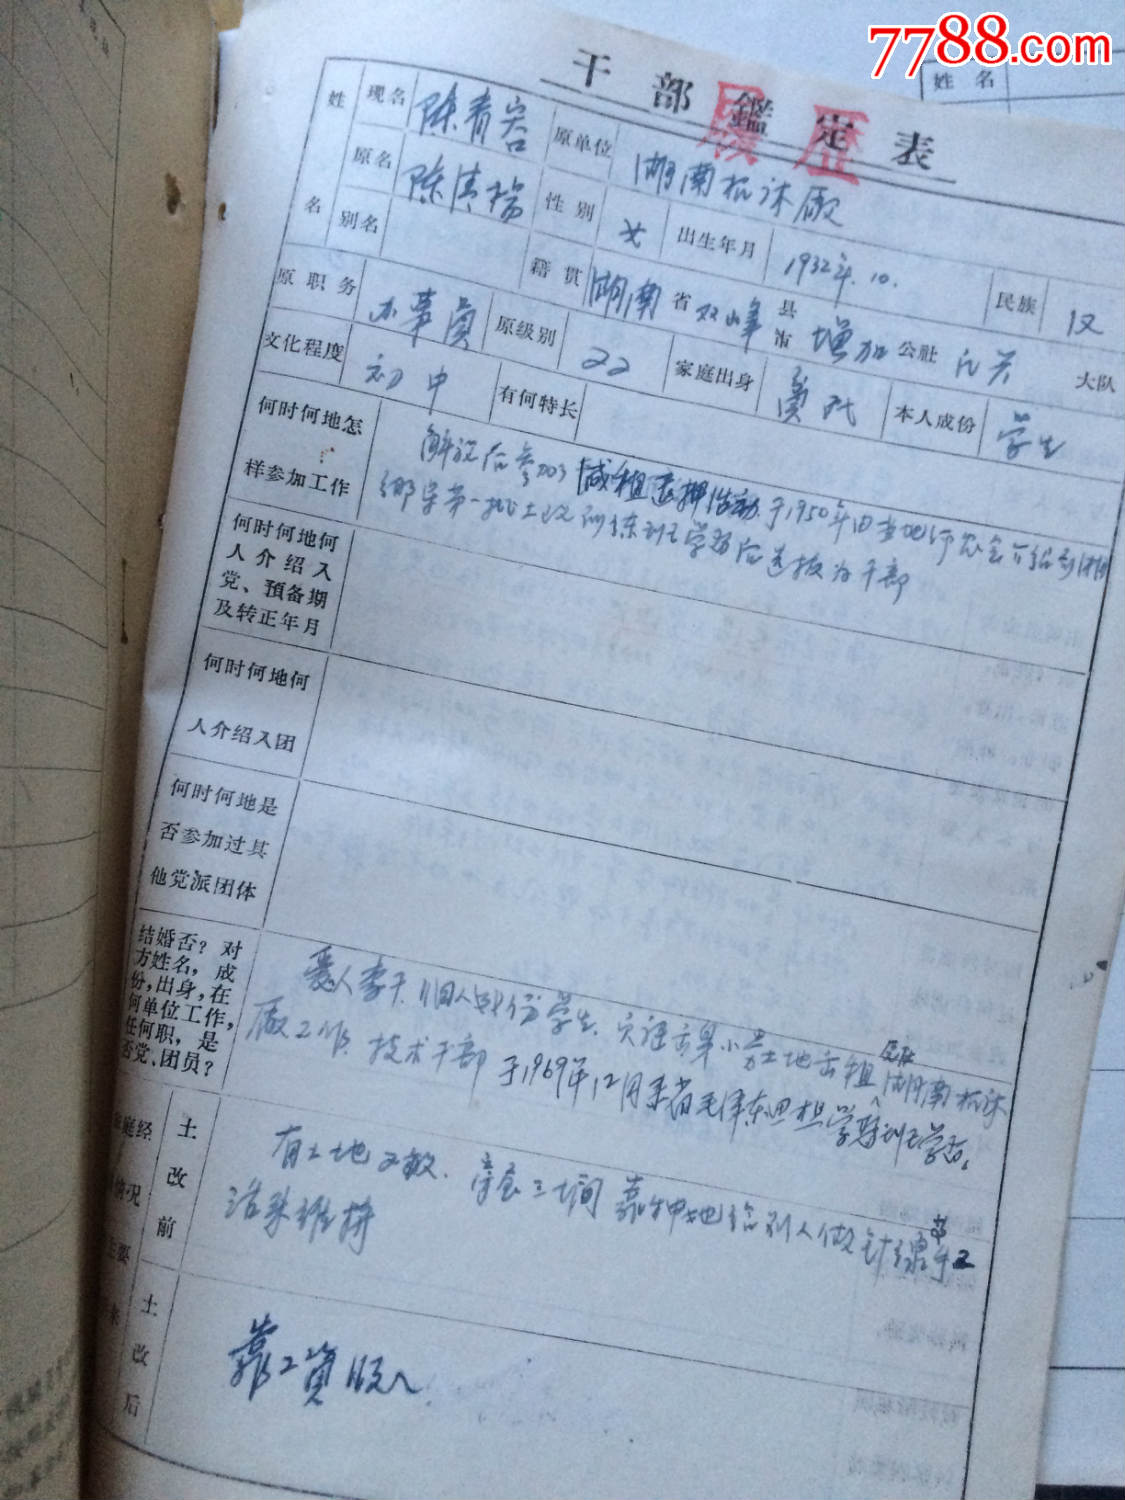 7788.com
干部鑑定表
履歴
姓名
姓 现名 陈青容 原单位 湖南机床厰
原名 陈清
名 别名 性别 女 出生年月 1932年.10. 民族 汉
籍贯 湖南 省 双峰 县市 增加 公社 大队
原职务 办事员 原级别 22 家庭出身 贫民 本人成份 学生
文化程度 初中 有何特长
何时何地怎
样参加工作
解放后参加 减租退押活动.于1950年由当地农会介绍到
乡学第一批土改训练班学习后选拔为干部
何时何地何
人介绍入
党、预备期
及转正年月
何时何地何
人介绍入团
何时何地是
否参加过其
他党派团体
结婚否？对
方姓名，成
份，出身，在
何单位工作，
任何职，是
否党、团员？
爱人李 个人成份学生. 家庭出身小土地出租 湖南机床
厰工作 技术干部 于1969年12月来省毛泽东思想学习班学习。
庭经
情况
主要
来
土改前
有土地 亩. 房屋三间 靠 地给别人做 针线
活来维持
土改后
靠工资收入